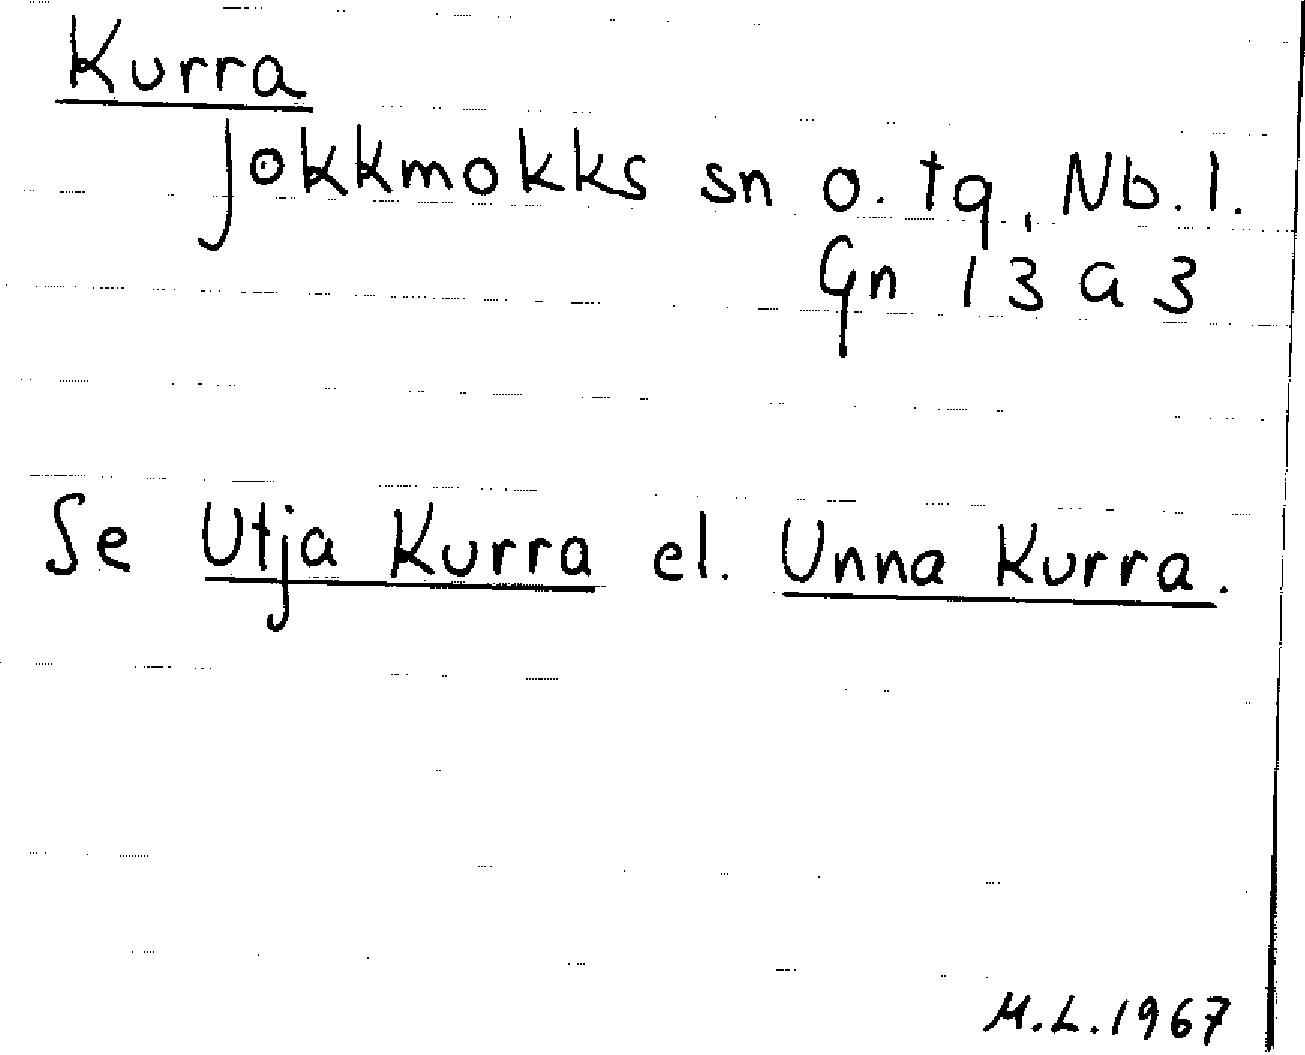 Kurra
Jokkmokks sn o. tg, Nb. l.
Gn 13 a 3
Se Utja Kurra el. Unna Kurra.
M.L. 1967